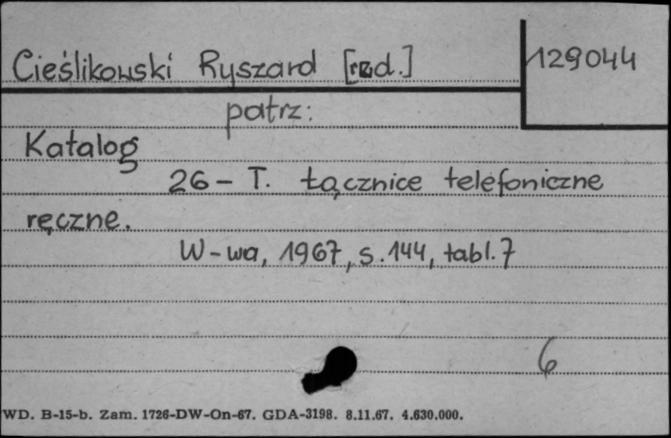 Cieślikowski Ryszard [red.]
129044
patrz:
Katalog
26 - T. Łącznice telefoniczne
ręczne.
W-wa, 1967, s. 144, tabl. 7
6
WD. B-15-b. Zam. 1726-DW-On-67. GDA-3198. 8.11.67. 4.630.000.